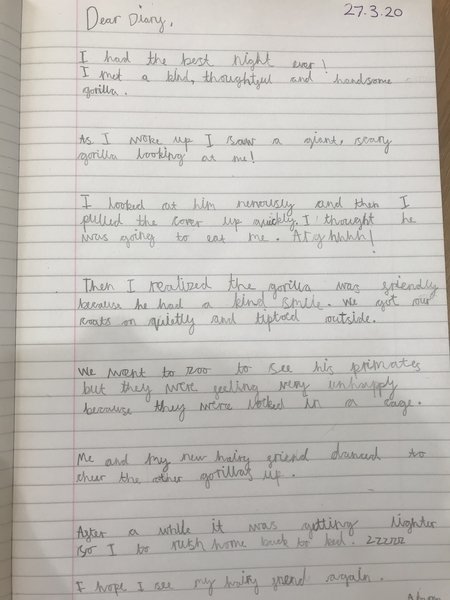 Dear Diary,
27.3.20
I had the best night ever!
I met a kind, thoughtful and handsome
gorilla.
As I woke up I saw a giant, scary
gorilla looking at me!
I looked at him nervously and then I
pulled the cover up quickly. I thought he
was going to eat me. Arghhhh!
Then I realized the gorilla was friendly
because he had a kind smile. We got our
coats on quietly and tiptoed outside.
We went to zoo to see his primates
but they were feeling very unhappy
because they were locked in a cage.
Me and my new hairy friend danced to
cheer the other gorillas up.
After a while it was getting lighter
so I to rush home back to bed. zzzzz
I hope I see my hairy friend again.